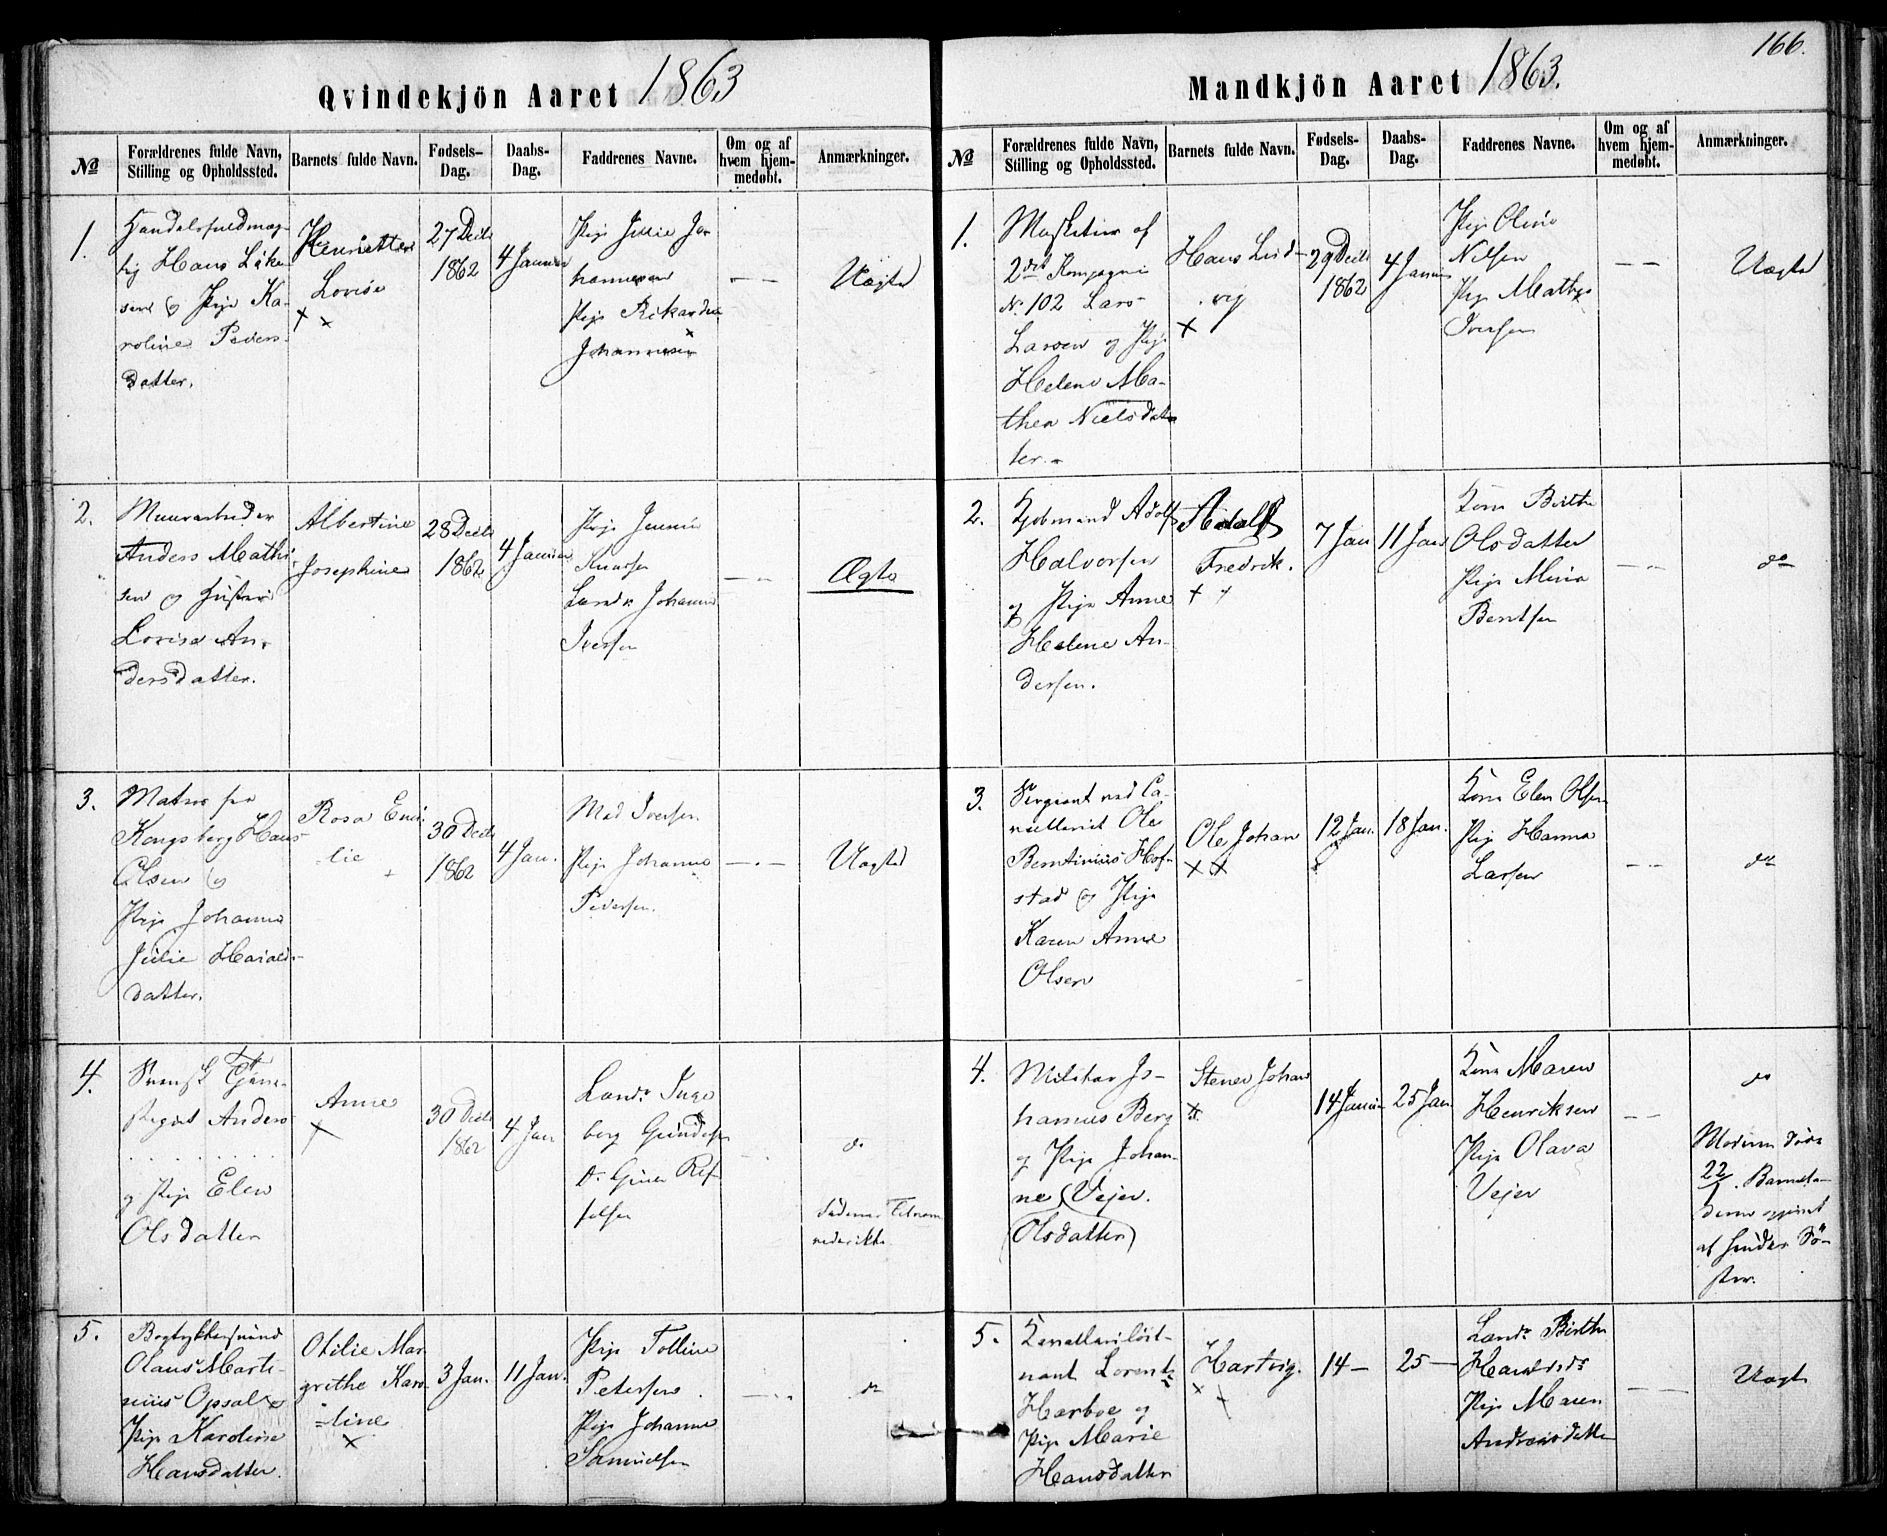 166.
Qvindekjön Aaret 1863
№
Forældrenes fulde Navn,
Stilling og Opholdssted.
Barnets fulde Navn.
Fødsels-
Dag.
Daabs-
Dag.
Faddrenes Navne.
Om og af
hvem hjem-
medøbt.
Anmærkninger.
1.
Handelsfuldmæg-
tig Hans
sen og Pige Ka-
roline Peders-
datter.
Henriette
Lovise
27 Decb
1862
4 Januar
Pige Julie Jo-
hannesen
Pige Rikarda
Johannesen
Uægte
2.
Muurarbeider
Anders Mathi
sen og Hustru
Lovise An-
dersdatter.
Albertine
Josephine
28 Decb
1862
4 Januar
Pige Jennie
Knudsen
Johanne
Iversen
Ægte
3.
Matros fra
Kongsberg Hans
Olsen og
Pige Johanne
Julie Harald-
datter.
Rosa Emi-
lie
30 Decb
1862
4 Jan.
Mad Iversen
Pige Johanne
Pedersen.
Uægte
4.
Svensk
Anders
. . . . . . . . . .
og Pige Elen
Olsdatter
Anne
30 Decb
1862
4 Jan
Inge
borg
do
Fadernes Tilnavn
vides ikke
5.
Bogtrykkersvend
Olaus Marti-
nius Opsal og
Pige Karoline
Hansdatter.
Otilie Mar
grethe Karo-
line
3 Jan.
11 Jan.
Pige Tolline
Petersen
Pige Johanne
Samuelsen
do
Mandkjön Aaret 1863.
№
Forældrenes fulde Navn,
Stilling og Opholdssted.
Barnets fulde Navn.
Fødsels-
Dag.
Daabs-
Dag.
Faddrenes Navne.
Om og af
hvem hjem-
medøbt.
Anmærkninger.
1.
Musketeer af
2det Kompagni
No. 102 Lars
Larsen og Pige
Helene Ma-
thea Nielsdat-
ter.
Hans Lud-
vig
29 Decb
1862
4 Januar
Pige Oline
Nilsen
Pige Mathea
Iversen
Uægte
2.
Kjøbmand Adolf
Halvorsen
og Pige Anne
Helene An-
dersen.
Adolf
Fredrik.
7 Jan
11 Jan
Kone Birthe
Olsdatter
Pige Mina
Bentsen
do
3.
Sergeant ved Ca-
valleriet Ole
Berntinius Hof-
stad og Pige
Karen Anne
Olsen
Ole Johan
12 Jan.
18 Jan.
Kone Elen Olsen
Pige Hanna
Larsen
do
4.
Militær Jo-
hannes Berg
og Pige Johan-
ne Vejer.
(Olsdatter)
Stener Johan
14 Januar
25 Jan
Kone Maren
Henriksen
Pige Olava
Vejer
do
Moderen døde
22/1. Barnet
af hendes Sø-
ster.
5.
Kavalleriløit-
nant Lorentz
Harboe og
Pige Marie
Hansdatter
Hartvig.
14 —
25 —
Birthe
Pige Maren
Andreasdatter
Uægte